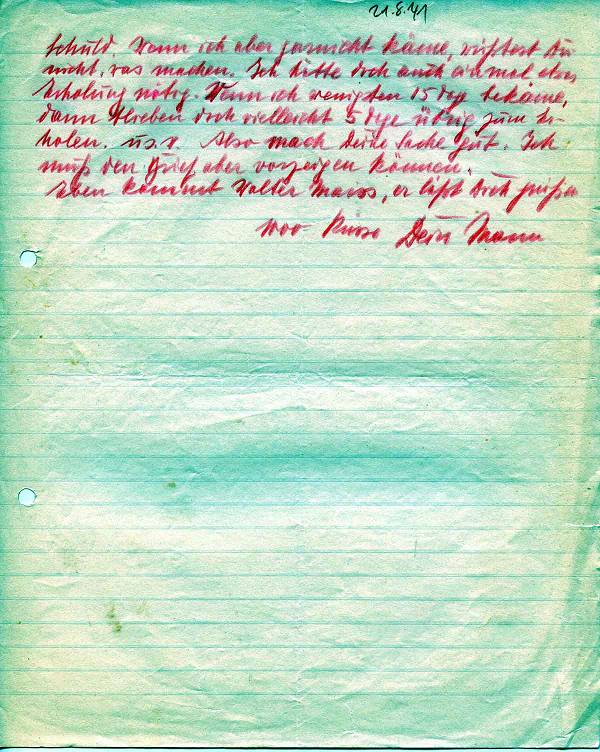 21.8.41
Schuld. Wenn ich aber garnicht käme, wüßtest Du
nicht, was machen. Ich hätte doch auch einmal etwas
Erholung nötig. Wenn ich wenigsten 15 Tag bekäme,
dann blieben doch vielleicht 5 Tage übrig zum Er-
holen. u.s.w. Also mach Deine Sache gut. Ich
muß den Brief aber vorzeigen können.
Eben kommt Walter, er läßt Dich grüßen
1000 Küsse Dein Mann